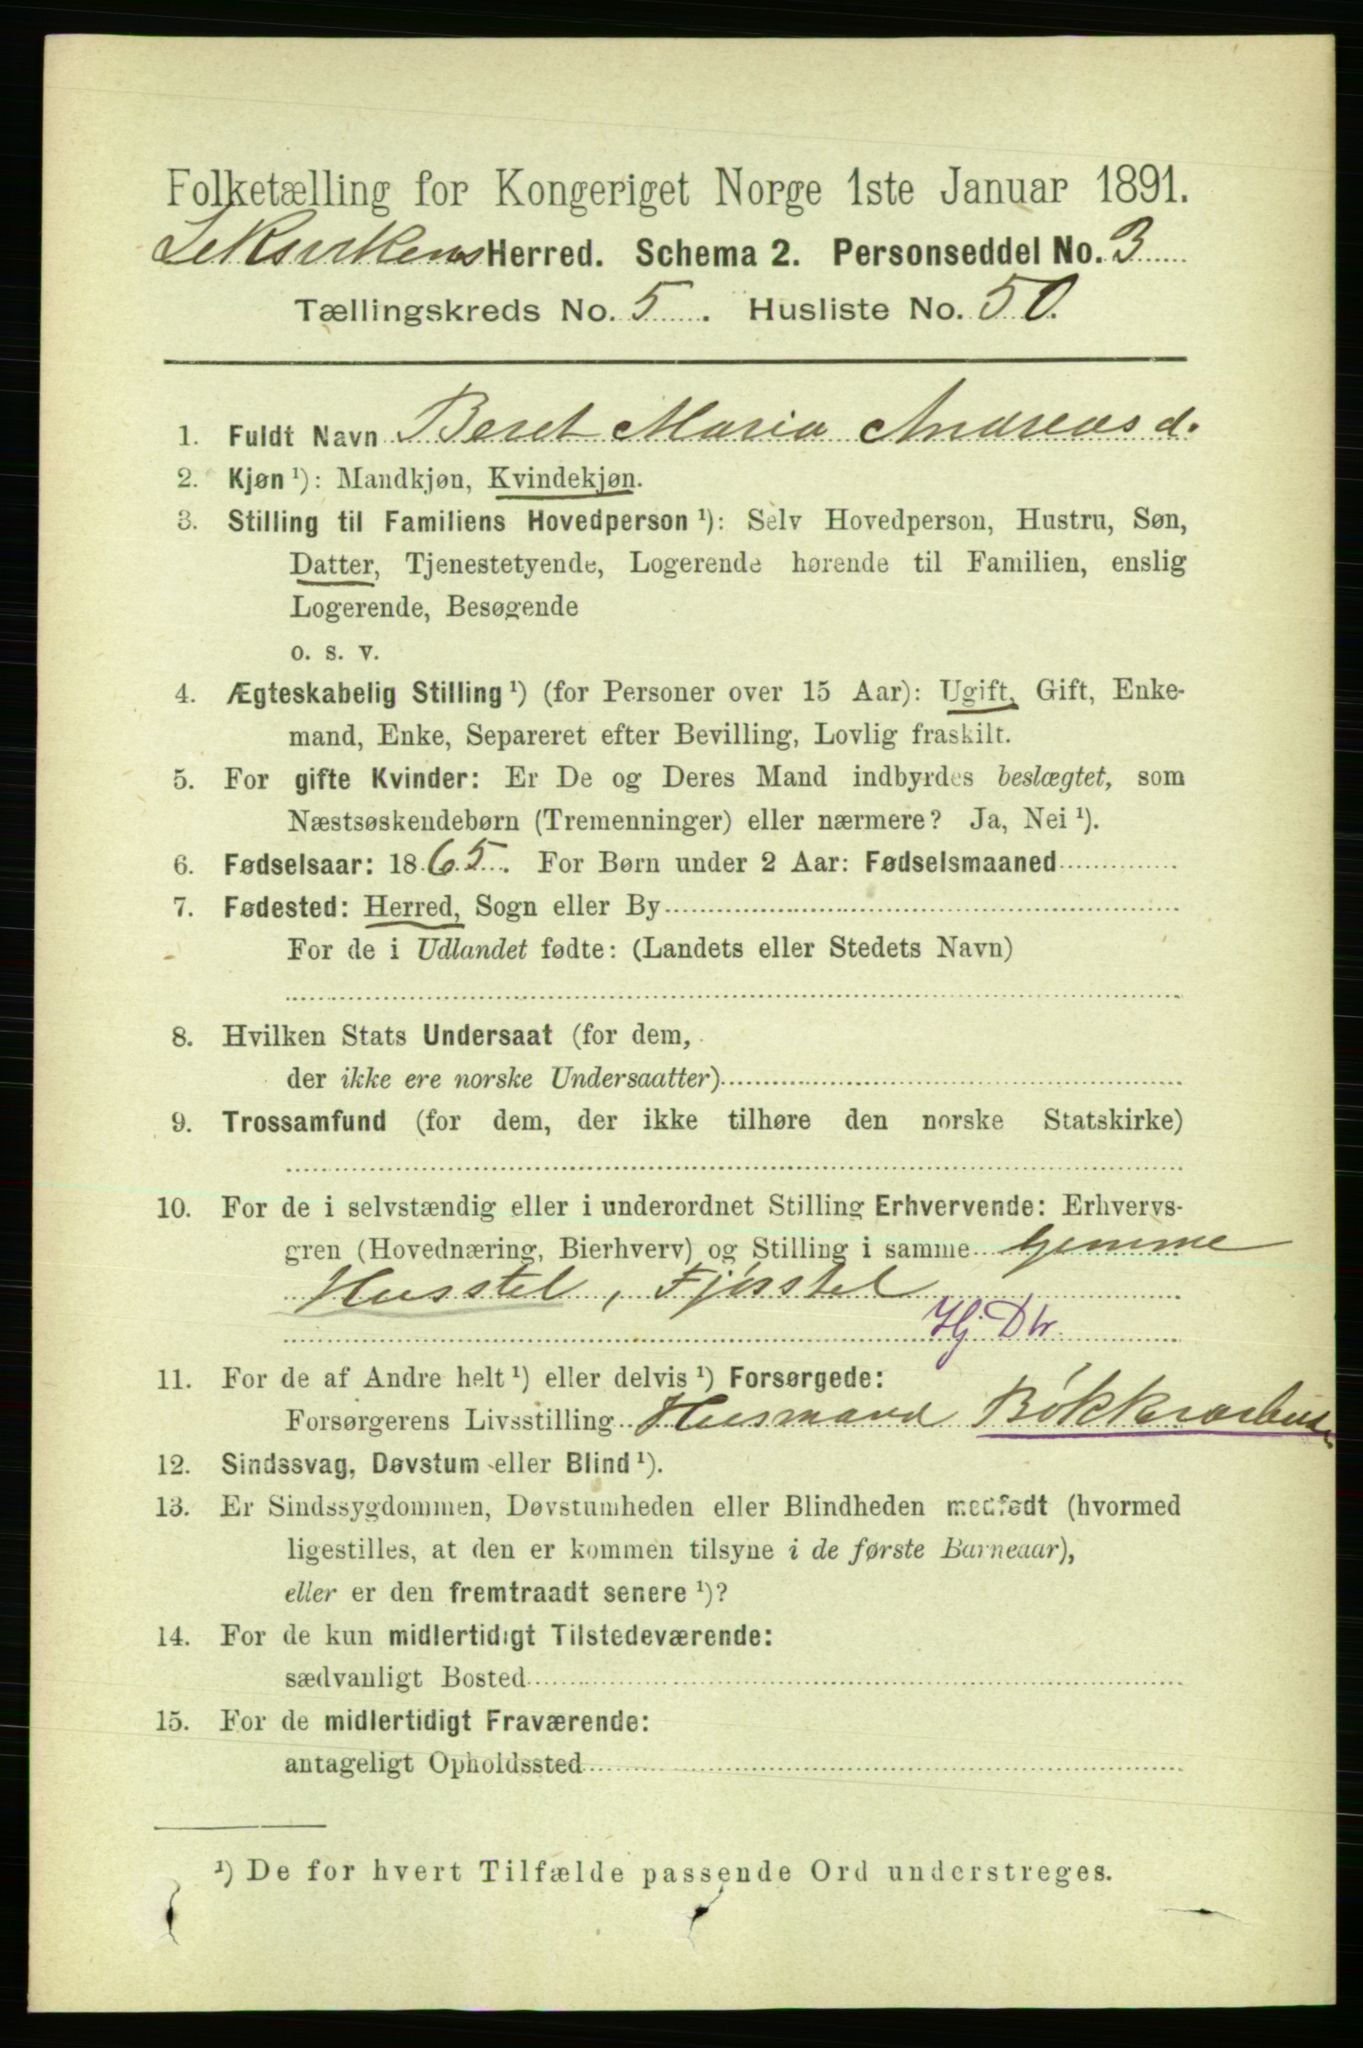 Folketælling for Kongeriget Norge 1ste Januar 1891.
Leksvikens Herred. Schema 2. Personseddel No. 3
Tællingskreds No. 5. Husliste No. 50.
1. Fuldt Navn Beret Maria Andreasd.
2. Kjøn ¹): Mandkjøn, Kvindekjøn.
3. Stilling til Familiens Hovedperson ¹): Selv Hovedperson, Hustru, Søn,
Datter, Tjenestetyende, Logerende hørende til Familien, enslig
Logerende, Besøgende
o. s. v.
4. Ægteskabelig Stilling ¹) (for Personer over 15 Aar): Ugift, Gift, Enke-
mand, Enke, Separeret efter Bevilling, Lovlig fraskilt.
5. For gifte Kvinder: Er De og Deres Mand indbyrdes beslægtet, som
Næstsøskendebørn (Tremenninger) eller nærmere? Ja, Nei ¹).
6. Fødselsaar: 1865. For Børn under 2 Aar: Fødselsmaaned
7. Fødested: Herred, Sogn eller By
For de i Udlandet fødte: (Landets eller Stedets Navn)
8. Hvilken Stats Undersaat (for dem,
der ikke ere norske Undersaatter)
9. Trossamfund (for dem, der ikke tilhøre den norske Statskirke)
10. For de i selvstændig eller i underordnet Stilling Erhvervende: Erhvervs-
gren (Hovednæring, Bierhverv) og Stilling i samme hjemme
Husstel, Fjøsstel
Hj. Dtr.
11. For de af Andre helt ¹) eller delvis ¹) Forsørgede:
Forsørgerens Livsstilling Husmand
12. Sindssvag, Døvstum eller Blind ¹).
13. Er Sindssygdommen, Døvstumheden eller Blindheden medfødt (hvormed
ligestilles, at den er kommen tilsyne i de første Barneaar),
eller er den fremtraadt senere ¹)?
14. For de kun midlertidigt Tilstedeværende:
sædvanligt Bosted
15. For de midlertidigt Fraværende:
antageligt Opholdssted
¹) De for hvert Tilfælde passende Ord understreges.